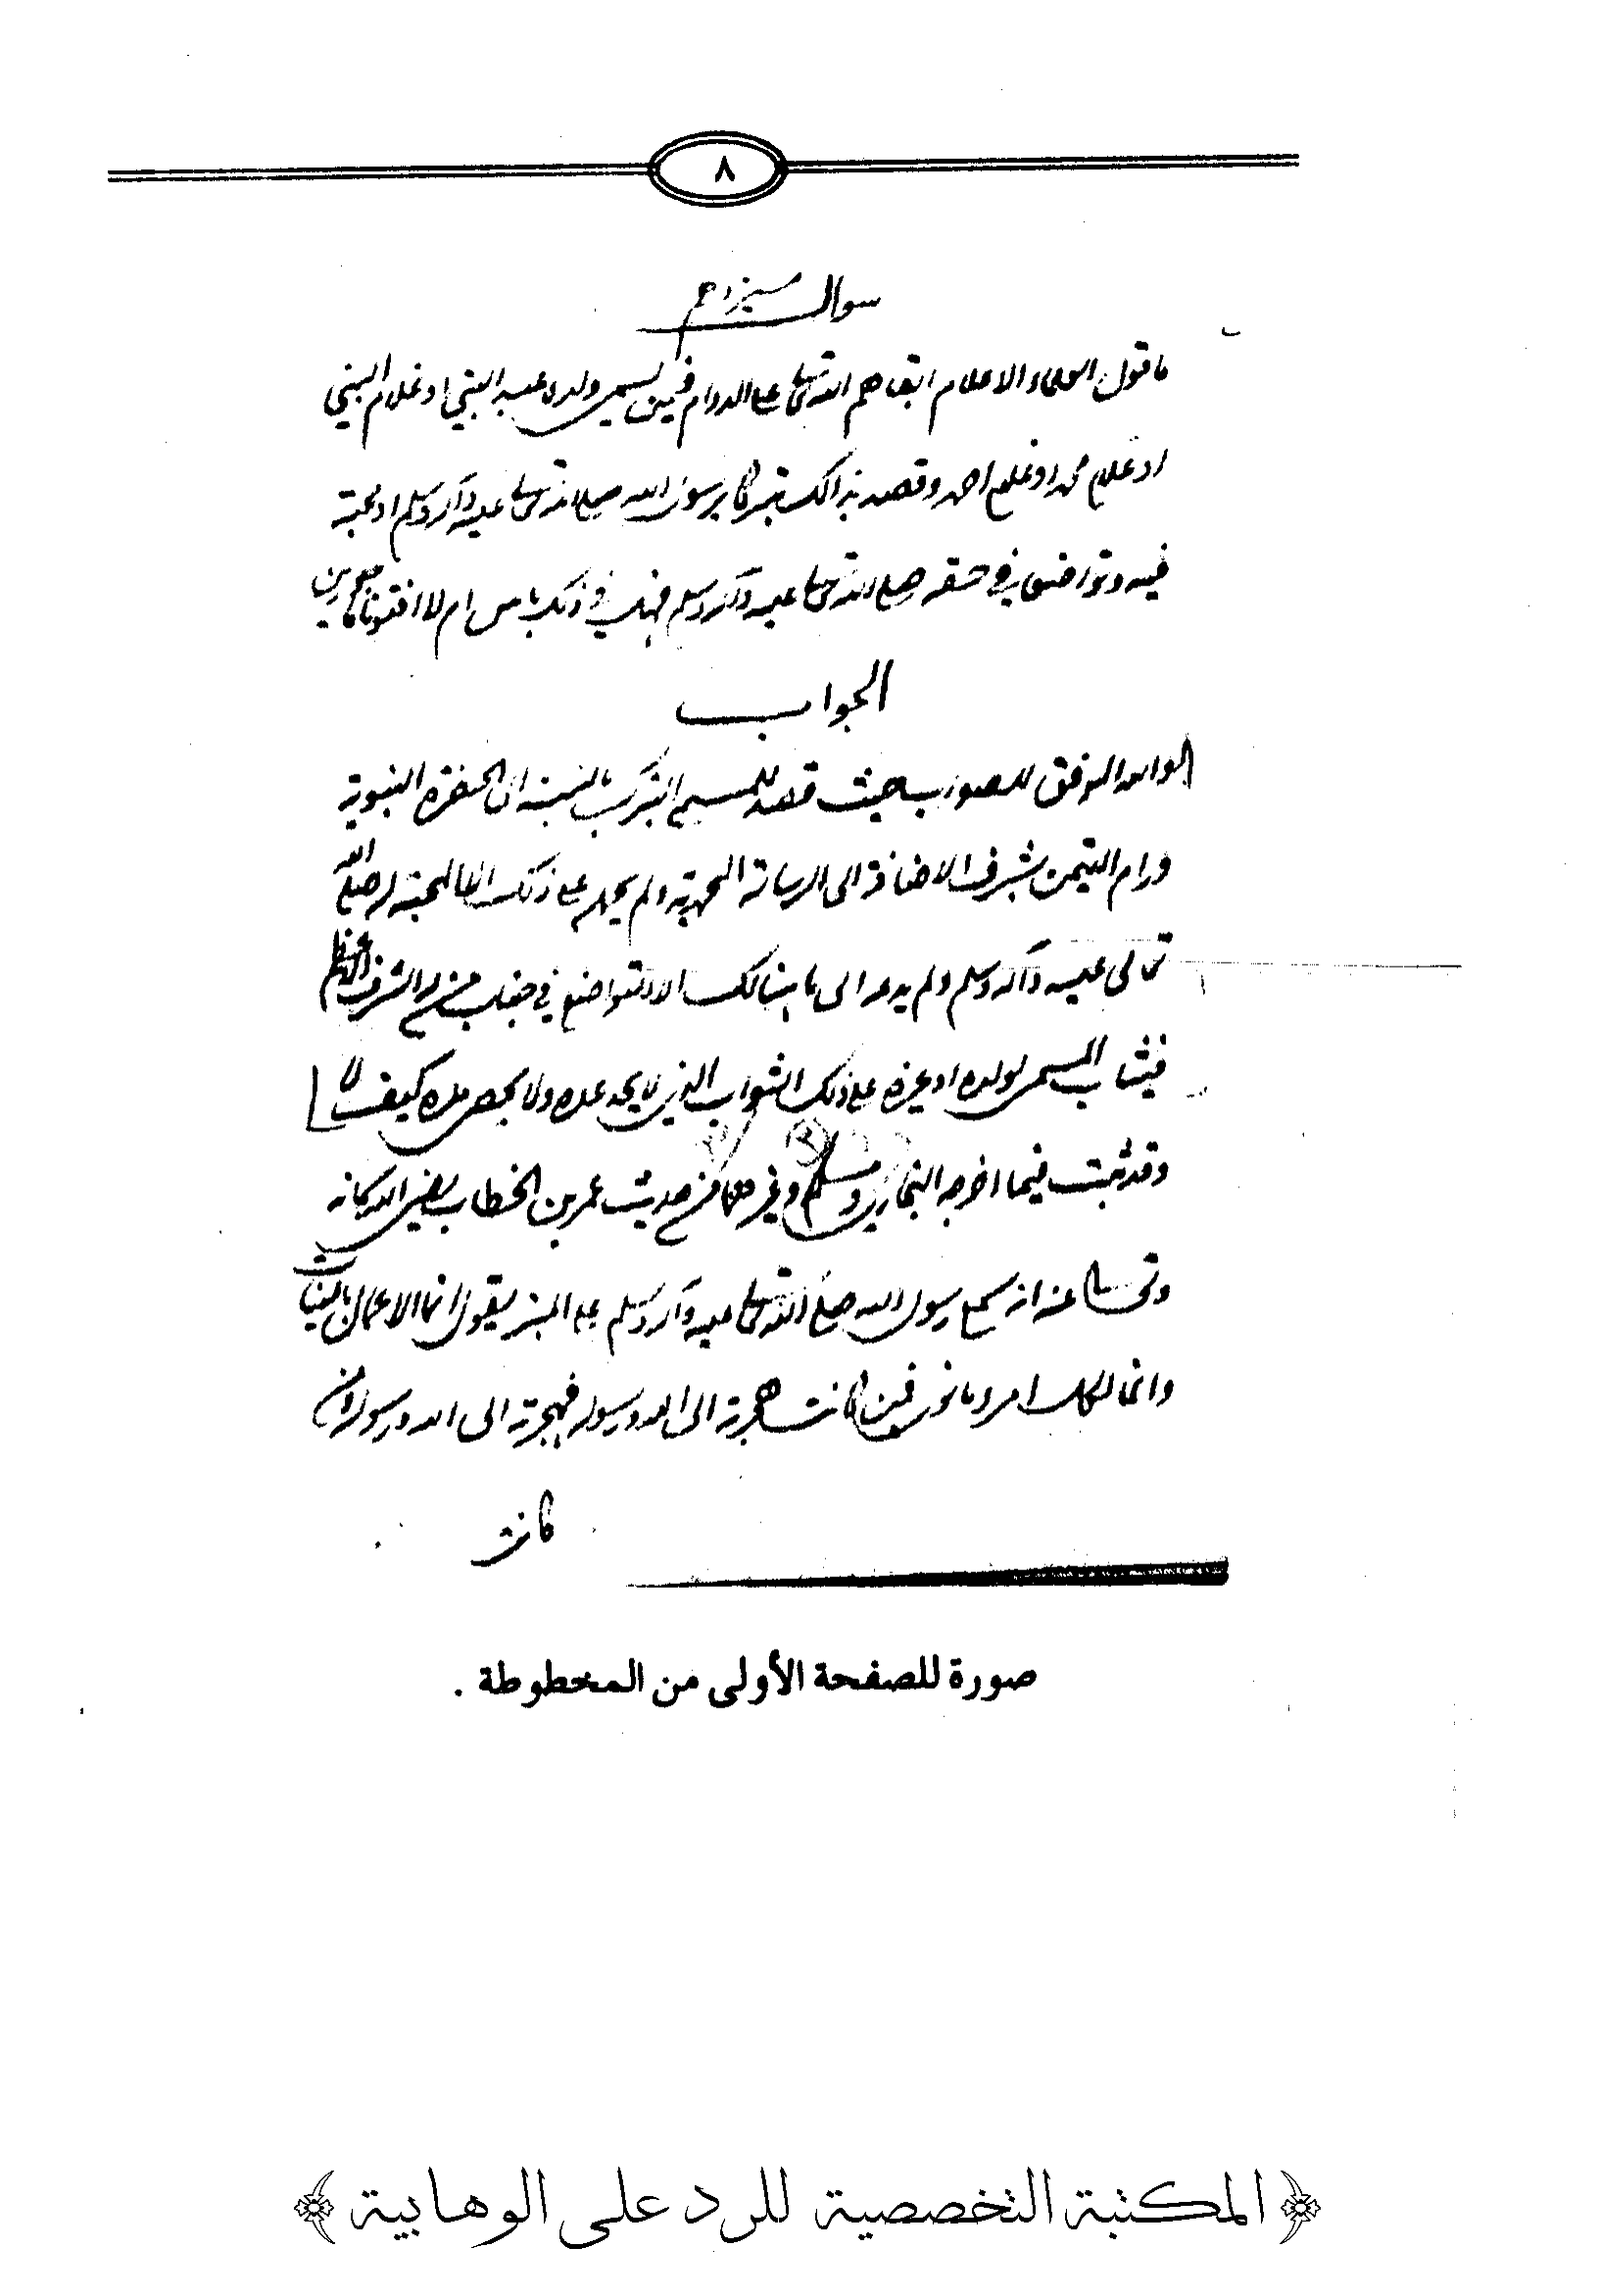 ٨
سوال سیزدہم
ما قول العلماء الاعلام ابقاهم الله تعالى على الدوام فيمن يسمى ولده عبد النبي او غلام النبي
او غلام محمد او غلام احمد وقصد بذالك تبركا برسول الله صلى الله تعالى عليه وآله وسلم او محبة
فيه وتواضعا في حقه صلى الله تعالى عليه وآله وسلم فهل في ذلك باس ام لا افتونا ماجورين
الجواب
الله الموفق للصواب حيث قصد المسمي التبرك بالنسبة الى الحضرة النبوية
ورام التيمن بشرف الاضافة الى الرسالة المحمدية ولم يحمله على ذلك الا المحبة له صلى الله
تعالى عليه وآله وسلم ولم يدعه الى ما هنالك الا التواضع في جناب من له الشرف الاعظم
فيثاب المسمى لولده او غيره على ذلك الثواب الذي لا يحد عده ولا يحصى مده كيف لا
وقد ثبت فيما اخرجه البخاري ومسلم وغيرهما من حديث عمر بن الخطاب رضي الله سبحانه
وتعالى عنه انه سمع رسول الله صلى الله تعالى عليه وآله وسلم على المنبر يقول انما الاعمال بالنيات
وانما لكل امرء ما نوى فمن كانت هجرته الى الله ورسوله فهجرته الى الله ورسوله ومن
كانت
صورة للصفحة الأولى من المخطوطة .
﴿ المكتبة التخصصية للرد على الوهابية ﴾